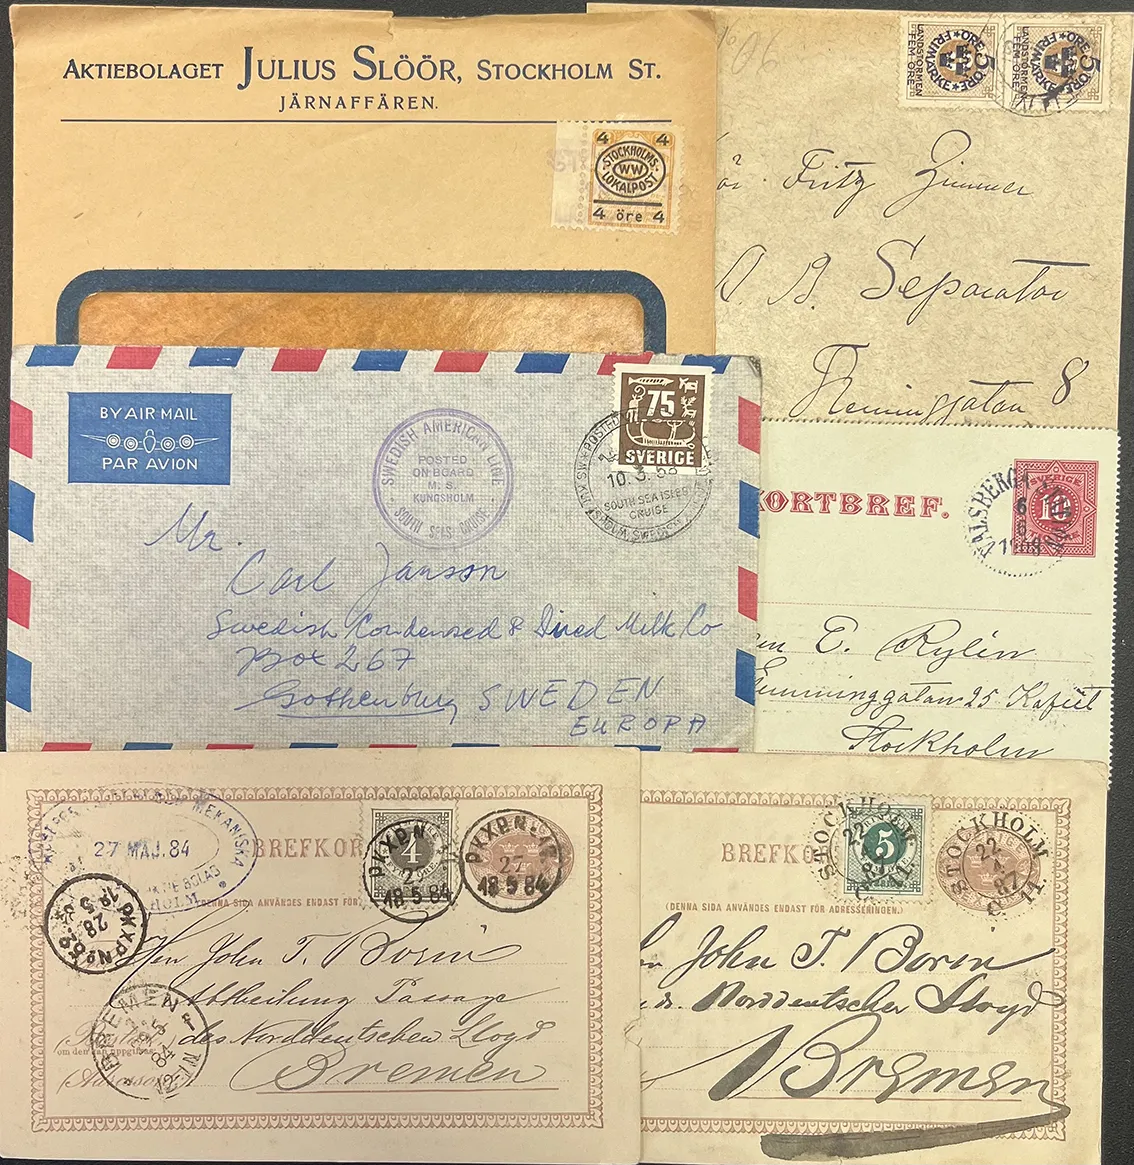 AKTIEBOLAGET JULIUS SLÖÖR, STOCKHOLM ST.
JÄRNAFFÄREN.
4 4
STOCKHOLMS-
WW
LOKALPOST
4 öre 4
06
FRIMÄRKE ÖRE 5 ÖRE
LANDSTORMEN
FEM ÖRE
FRIMÄRKE ÖRE 5 ÖRE
LANDSTORMEN
FEM ÖRE
Fritz Zimmer
A. B. Separator
Fleminggatan 8
BY AIR MAIL
PAR AVION
SWEDISH AMERICAN LINE
POSTED
ON BOARD
M. S.
KUNGSHOLM
SOUTH SEAS CRUISE
75
SVERIGE
10. 3. 58
SOUTH SEA ISLES
CRUISE
SWEDEN
Mr.
Carl Janson
Swedish Condensed & Dried Milk Co
Box 267
Gothenburg SWEDEN
EUROPA
KORTBREF.
10
6
E. Rylin
Flemminggatan 25 Kafeet
Stockholm
MEKANISKA
27 MAJ. 84
BREFKOR
4
PKXP.N
18 5 84
PKXP.N
27
18 5 84
(DENNA SIDA ANVÄNDES ENDAST FÖR
PKXP.No 62
28
5
Herr John T. Borin
Abtheilung Passage
des Norddeutschen Lloyd
Bremen
BREMEN
84
12-1N
om den kan uppgifvas
BREFKO
STOCKHOLM
22
5
STOCKHOLM
22
87
11.
(DENNA SIDA ANVÄNDES ENDAST FÖR ADRESSERINGEN.)
John T. Borin
Norddeutscher Lloyd
Bremen